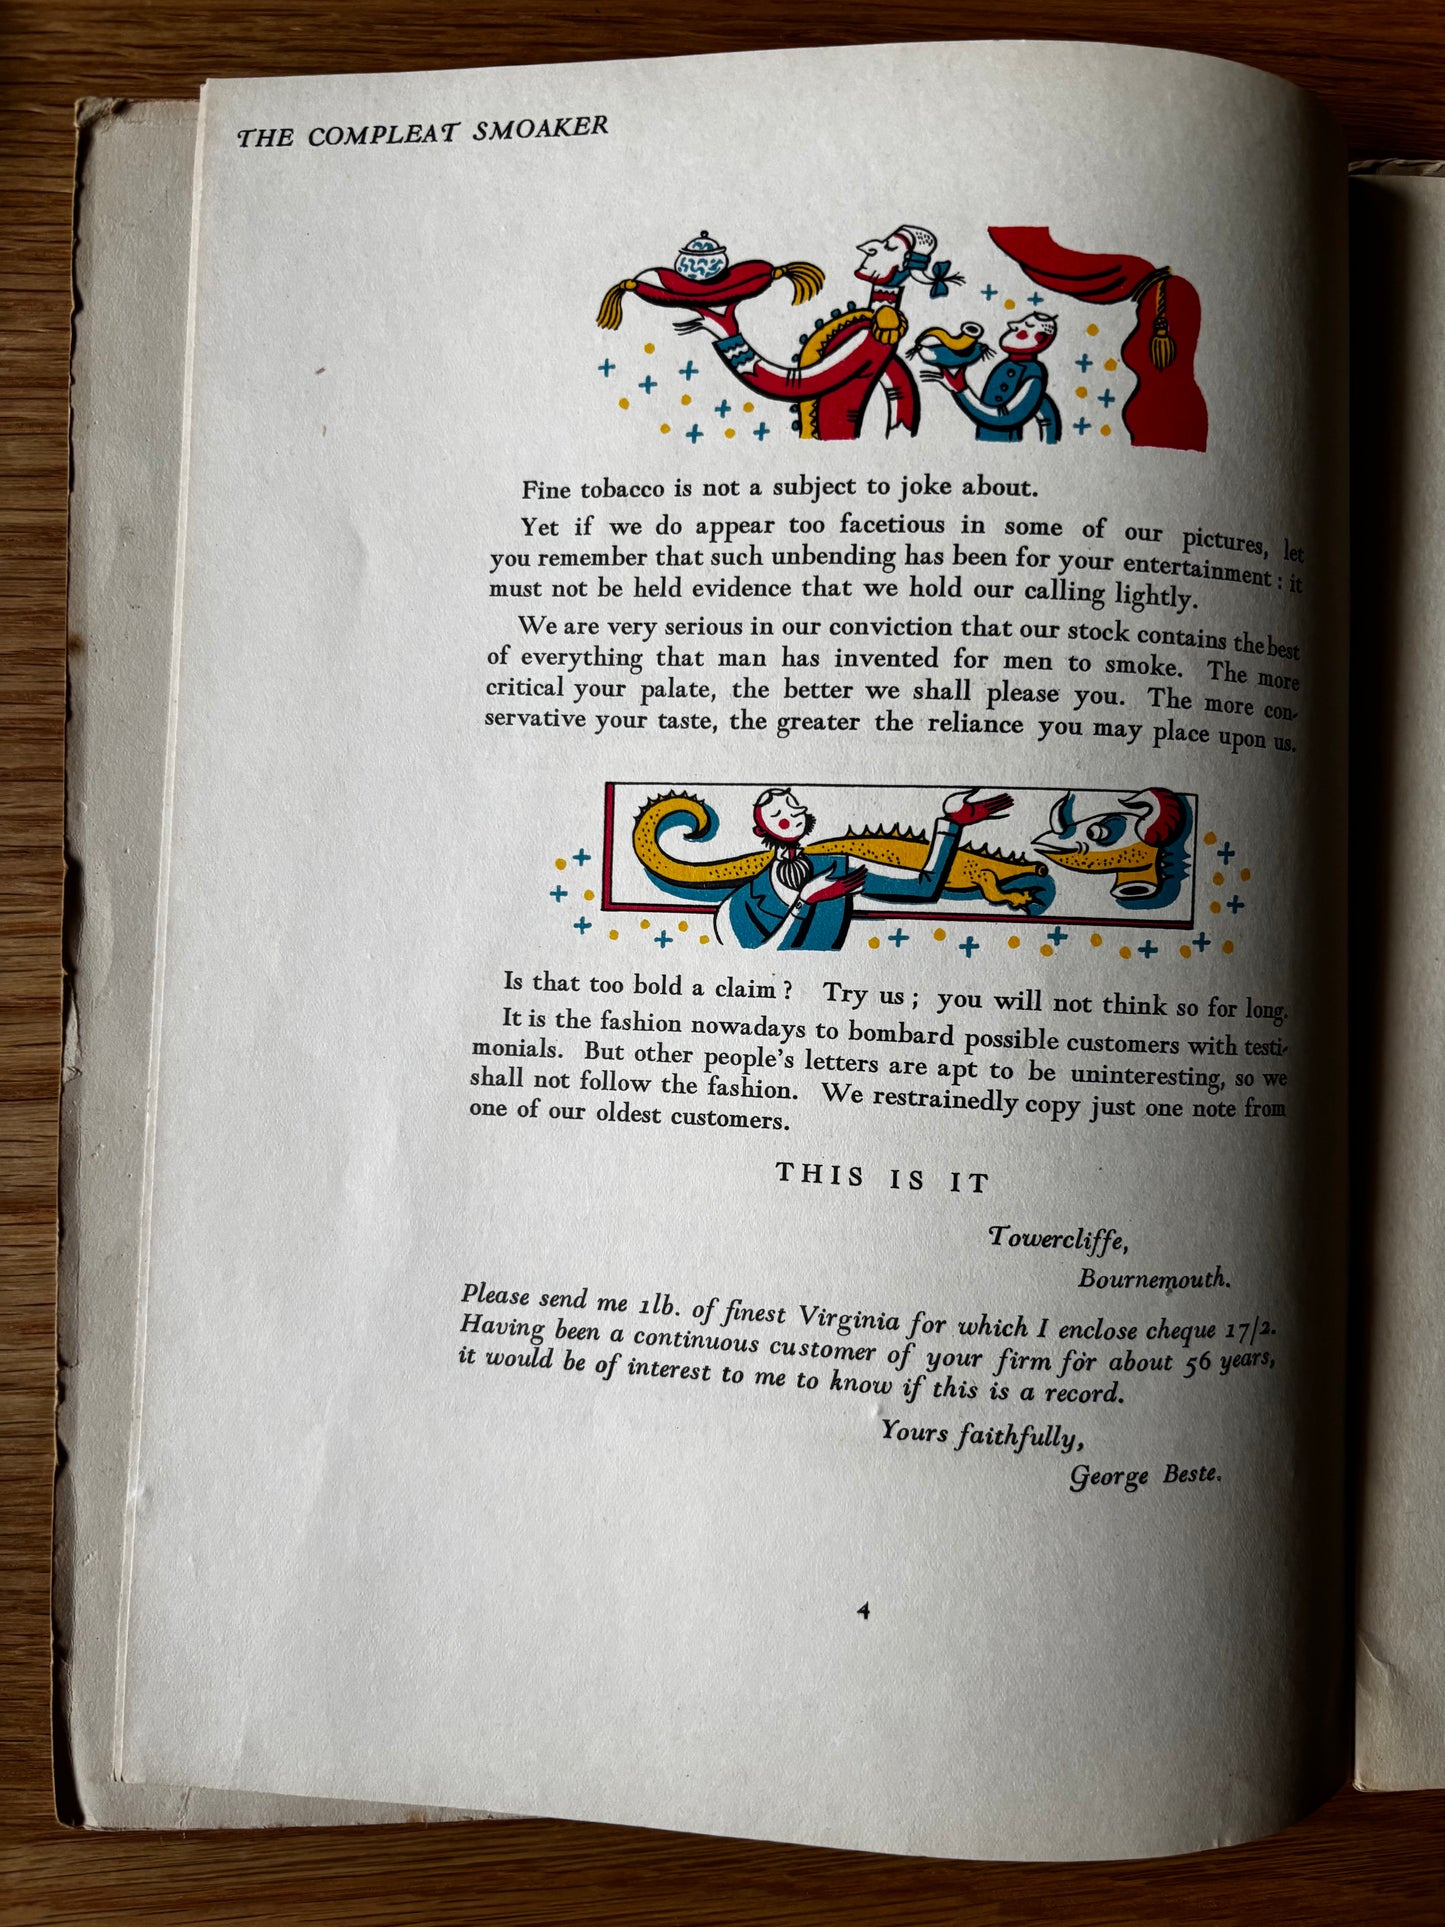 THE COMPLEAT SMOAKER
Fine tobacco is not a subject to joke about.
Yet if we do appear too facetious in some of our pictures, let
you remember that such unbending has been for your entertainment : it
must not be held evidence that we hold our calling lightly.
We are very serious in our conviction that our stock contains the best
of everything that man has invented for men to smoke. The more
critical your palate, the better we shall please you. The more con-
servative your taste, the greater the reliance you may place upon us.
Is that too bold a claim ? Try us ; you will not think so for long.
It is the fashion nowadays to bombard possible customers with testi-
monials. But other people's letters are apt to be uninteresting, so we
shall not follow the fashion. We restrainedly copy just one note from
one of our oldest customers.
THIS IS IT
Towercliffe,
Bournemouth.
Please send me 1lb. of finest Virginia for which I enclose cheque 17/2.
Having been a continuous customer of your firm for about 56 years,
it would be of interest to me to know if this is a record.
Yours faithfully,
George Beste.
4